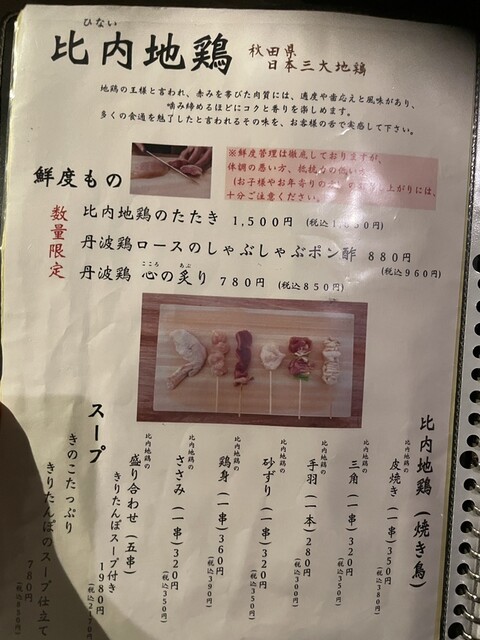 ひない
比内地鶏
秋田県
日本三大地鶏
地鶏の王様と言われ、赤みを帯びた肉質には、適度や歯応えと風味があり、
噛み締めるほどにコクと香りを楽しめます。
多くの食通を魅了したと言われるその味を、お客様の舌で実感して下さい。
鮮度もの
※鮮度管理は徹底しておりますが、
体調の悪い方、抵抗力の低い方
(お子様やお年寄りの
上がりには、
十分ご注意ください。
数量限定
比内地鶏のたたき 1,500円 (税込1,650円)
丹波鶏ロースのしゃぶしゃぶポン酢 880円
(税込960円)
こころ あぶ
丹波鶏 心の炙り 780円 (税込850円)
比内地鶏(焼き鳥)
比内地鶏の
皮焼き(一串)350円
(税込380円)
比内地鶏の
三角(一串)320円
(税込350円)
比内地鶏の
手羽(一本)280円
(税込300円)
比内地鶏の
砂ずり(一串)320円
(税込350円)
比内地鶏の
鶏身(一串)360円
(税込390円)
比内地鶏の
ささみ(一串)320円
(税込350円)
比内地鶏の
盛り合わせ(五串)
きりたんぽスープ付き
1980円
スープ
きのこたっぷり
きりたんぽのスープ仕立て
780円
(税込850円)